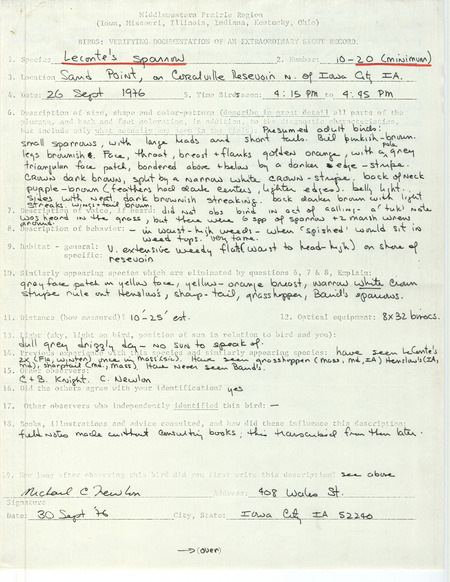 Middlewestern Prairie Region
(Iowa, Missouri, Illinois, Indiana, Kentucky, Ohio)
BIRDS: VERIFYING DOCUMENTATION OF AN EXTRAORDINARY SIGHT RECORD
1. Species Leconte's sparrow 2. Number: 10-20 (minimum)
3. Location Sand Point, on Coralville Resevoir N. of Iowa City IA.
4. Date: 26 Sept 1976 5. Time Bird seen: 4:15 PM to 4:45 PM
6. Description of size, shape and color-pattern (describe in great detail all parts of the
plumage, and beak and feet coloration. In addition, to the diagnostic characteristics,
but include only what actually was seen in the field): Presumed adult birds:
small sparrows, with large heads and short tails. Bill pinkish-brown.
legs brownish. Face, throat, breast + flanks golden orange, with a grey
triangular face patch, bordered above + below by a darker edge-stripe.
Crown dark brown, split by a narrow white crown-stripe, back of neck
purple-brown (feathers had dark centers, lighter edges). belly light.
sides with neat dark brownish streaking. back darker brown with light
streaks. wings + tail brown.
7. Description of voice, if heard: did not obs bird in act of calling - a 'tuk' note
was heard in the grass, but there were 6 spp of sparrow + 2 marsh wrens
around
8. Description of behavior: - in waist-high weeds - when 'spished' would sit in
weed tops. very tame.
9. Habitat - general: V. extensive weedy flat (waist to head-high) on shore of
specific: resevoir
10. Similarly appearing species which are eliminated by questions 6, 7 & 8, Explain:
gray face patch on yellow face, yellow-orange breast, narrow white crown
stripe rule out Henslow's, sharp-tail, grasshopper, Baird's sparrows.
11. Distance (how measured)? 10-25' est. 12. Optical equipment: 8X32 binocs.
13. Light (sky, light on bird, position of sun in relation to bird and you):
dull grey drizzly day - no sun to speak of.
14. Previous experience with this species and similarly appearing species: have seen LeConte's
2x (Fla, winter) once in Mass (oct). Have seen grasshopper (mass, md, IA) Henslow's (IA,
md), sharptail (md, mass). Have never seen Baird's.
15. Other observers:
C + B. Knight. C. Newton
16. Did the others agree with your identification? yes
17. Other observers who independently identified this bird: -
18. Books, illustrations and advice consulted, and how did these influence this description:
field notes made without consulting books; this transcribed from them later.
19. How long after observing this bird did you first write this description? see above
Michael C Newlon Address: 408 Wales St.
Signature
Date: 30 Sept '76 City, State: Iowa City IA 52240
→ (over)